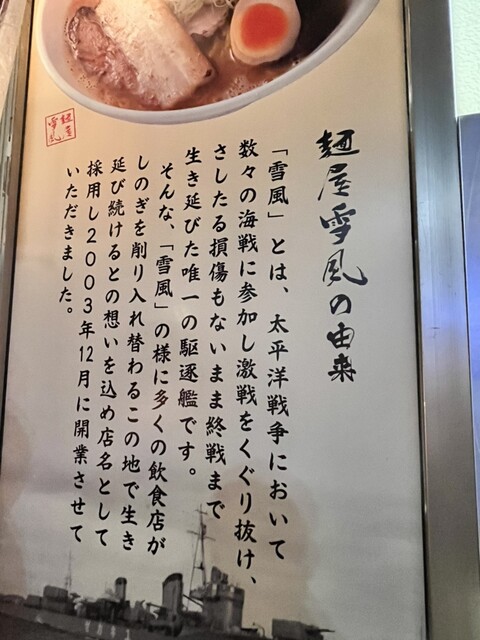 麺屋雪風の由来
「雪風」とは、太平洋戦争において
数々の海戦に参加し激戦をくぐり抜け、
さしたる損傷もないまま終戦まで
生き延びた唯一の駆逐艦です。
そんな、「雪風」の様に多くの飲食店が
しのぎを削り入れ替わるこの地で生き
延び続けるとの想いを込め店名として
採用し2003年12月に開業させて
いただきました。
麺屋
雪風